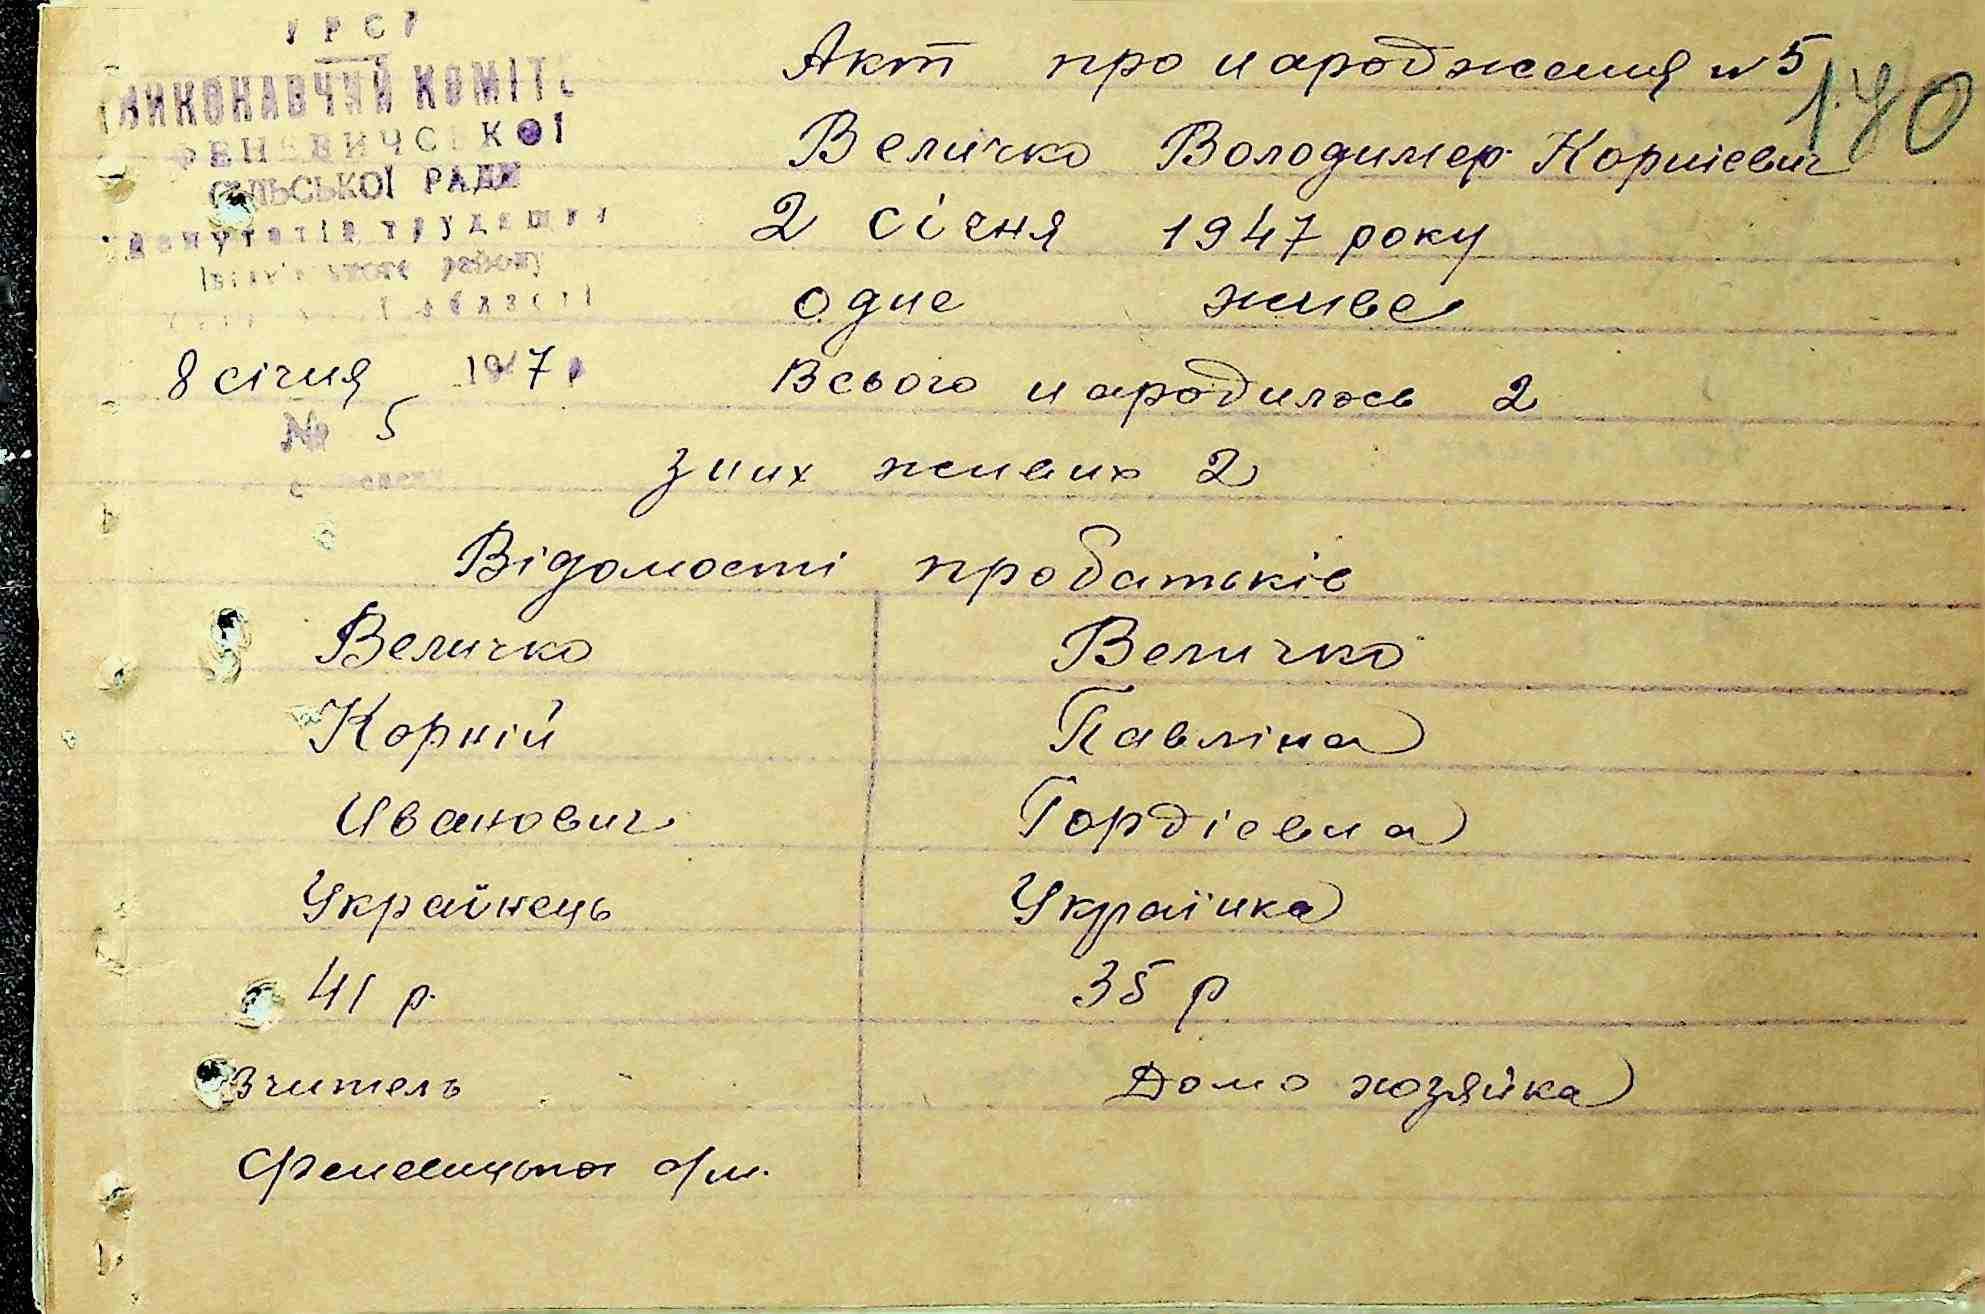 УРСР
ВИКОНАВЧИЙ КОМІТЕ
ФЕНЕВИЧСЬКОЇ
СІЛЬСЬКОЇ РАДИ
депутатів трудящих
району
області
8 січня 1947 р
№ 5
Акт про народження № 5
170
Величко Володимер Корнієвич
2 січня 1947 року
одне живе
Всього народилось 2
з них живих 2
Відомості про батьків
Величко Величко
Корній Павліна
Иванович Гордієвна
Українець Українка
41 р. 35 р
Вчитель Домо хозяйка